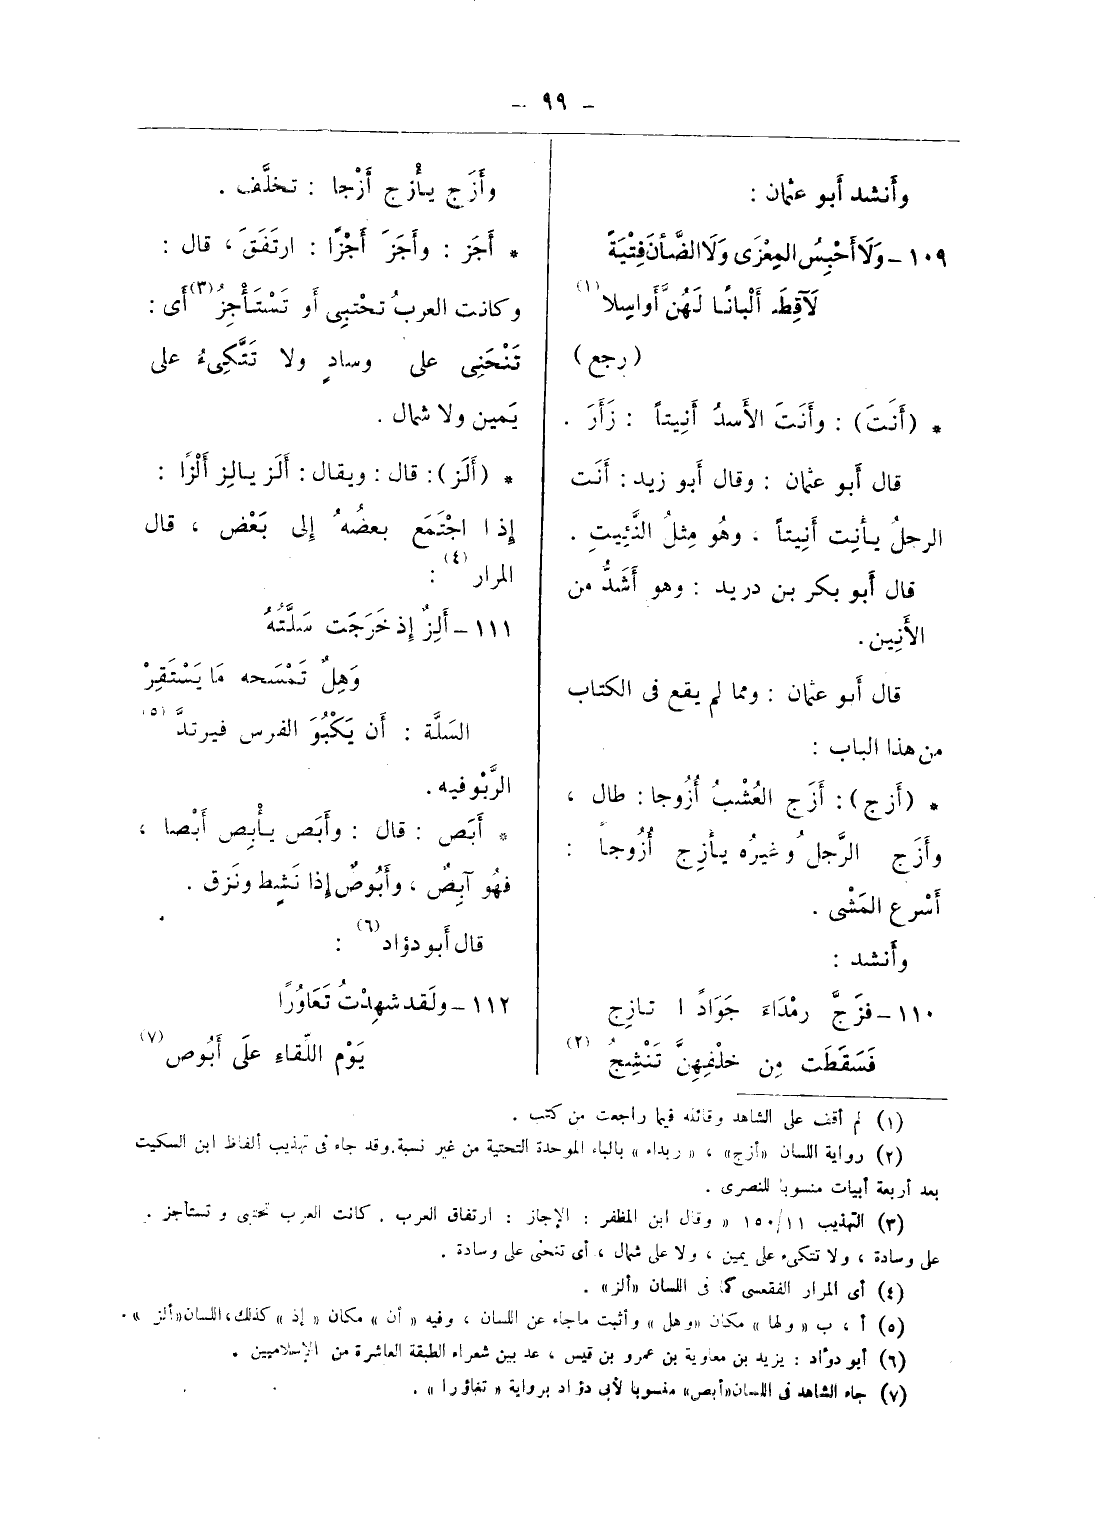 – ٩٩ –
وأَنشد أَبو عثمان :
١٠٩ – وَلَا أَحْبِسُ المِعْزَى وَلَا الضَّأنَ فِتْيَةً
لَآقِطَ أَلْبانًا لَهُنَّ أَواسِلا (١)
(رجع)
* (أَنَتَ) : وأَنَتَ الأَسدُ أَنِيتاً : زَأَرَ .
قال أَبو عثمان : وقال أَبو زيد : أَنَت
الرجلُ يأنِت أَنِيتاً ، وهُو مِثلُ النَّئِيتِ .
قال أَبو بكر بن دريد : وهو أَشَدُّ من
الأَنِين .
قال أَبو عثمان : ومما لم يقع فى الكتاب
من هذا الباب :
* (أَزج) : أَزَج العُشْبُ أُزُوجا : طال ،
وأَزَج الرَّجلُ وغيرُه يأزِج أُزُوجاً :
أَسْرع المَشْى .
وأَنشد :
١١٠ – فزَجَّ رمْدَاءَ جَوَادًا تازِج
فَسَقَطَت مِن خلْفِهِنَّ تَنْشِجُ (٢)
وأَزَج يأْزج أَزْجا : تخلَّف .
* أَجَز : وأَجَزَ أَجْزًا : ارتَفَقَ ، قال :
وكانت العربُ تحْتبِى أَو تَسْتَأْجِزُ (٣) أَى :
تَنْحَنِى على وسادٍ ولا تَتَّكِىءُ على
يَمين ولا شمال .
* (أَلَز) : قال : ويقال : أَلَز يالِز أَلْزًا :
إِذا اجْتَمَع بعضُه إِلى بَعْض ، قال
المرار (٤) :
١١١ – أَلِزٌ إِذ خَرَجَت سَلَّتُهُ
وَهِلٌ تَمْسَحه مَا يَسْتَقِرْ
السَلَّة : أَن يَكْبُوَ الفرس فيرتدَّ (٥)
الرَّبْو فيه .
* أَبَص : قال : وأَبَص يأْبِص أَبْصا ،
فهُو آبِصٌ ، وأَبُوصٌ إِذا نَشِط ونَزق .
قال أَبو دؤاد (٦) :
١١٢ – ولَقد شهِدْتُ تَعَاوُرًا
يَوْم اللّقاءِ علَى أَبُوص (٧)
(١) لم أقف على الشاهد وقائله فيما راجعت من كتب .
(٢) رواية اللسان «أزج» ، « ربداء » بالباء الموحدة التحتية من غير نسبة. وقد جاء فى تهذيب ألفاظ ابن السكيت
بعد أربعة أبيات منسوبا للنصرى .
(٣) التهذيب ١١/ ١٥٠ « وقال ابن المظفر : الإجاز : ارتفاق العرب . كانت العرب تحتبى و تستأجز .
على وسادة ، ولا تتكىء على يمين ، ولا على شمال ، أى تنحنى على وسادة .
(٤) أى المرار الفقعسى كما فى اللسان «ألز» .
(٥) أ ، ب « ولها » مكان «وهل» وأثبت ماجاء عن اللسان ، وفيه « أن » مكان « إذ » كذلك، اللسان «ألز » .
(٦) أبو دؤاد : يزيد بن معاوية بن عمرو بن قيس ، عد بين شعراء الطبقة العاشرة من الإسلاميين .
(٧) جاء الشاهد فى اللسان «أبص» منسوبا لأبى دؤاد برواية « تغاؤرا » .